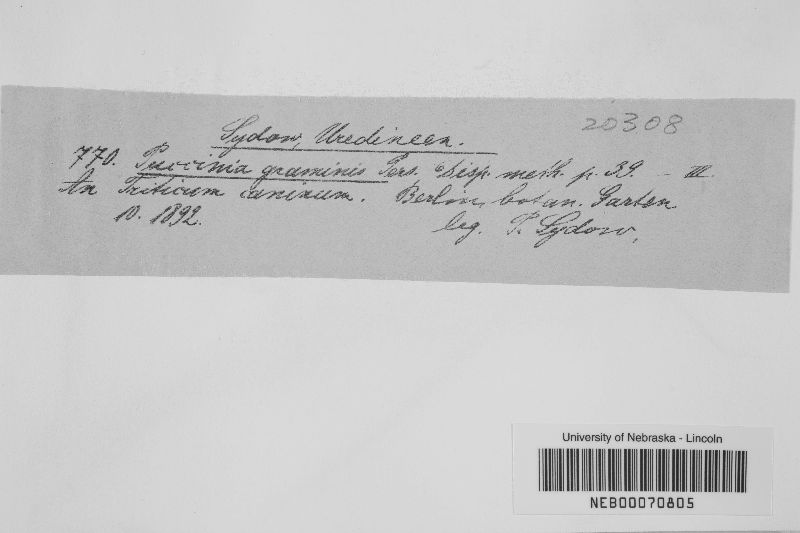 20308
Sydow, Uredineen.
770. Puccinia graminis Pers. Disp. meth. p. 39. – III.
An Triticum caninum. Berlin, botan. Garten
10. 1892. leg. P. Sydow,
University of Nebraska - Lincoln
NEB00070805